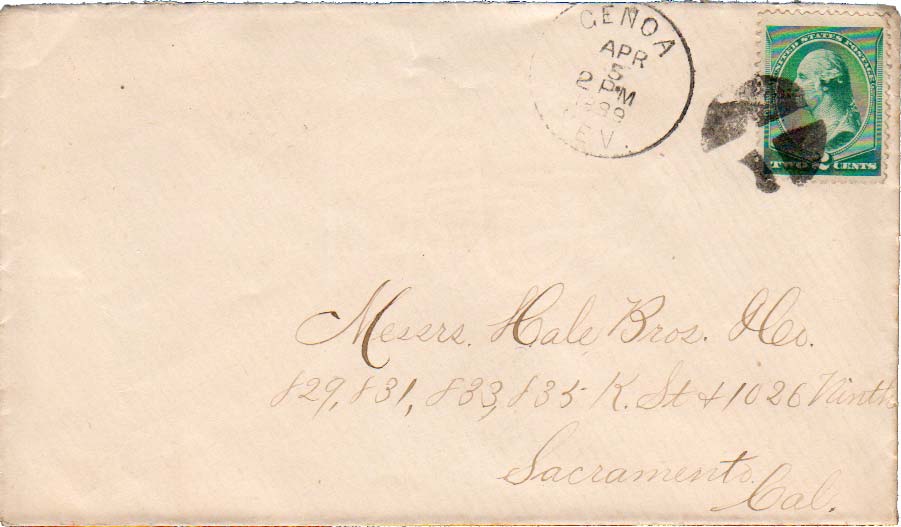 GENOA
APR
5
2 PM
1889
NEV.
UNITED STATES POSTAGE
TWO 2 CENTS
Messrs. Hale Bros. & Co.
829, 831, 833, 835 K. St + 1026 Ninth
Sacramento.
Cal.